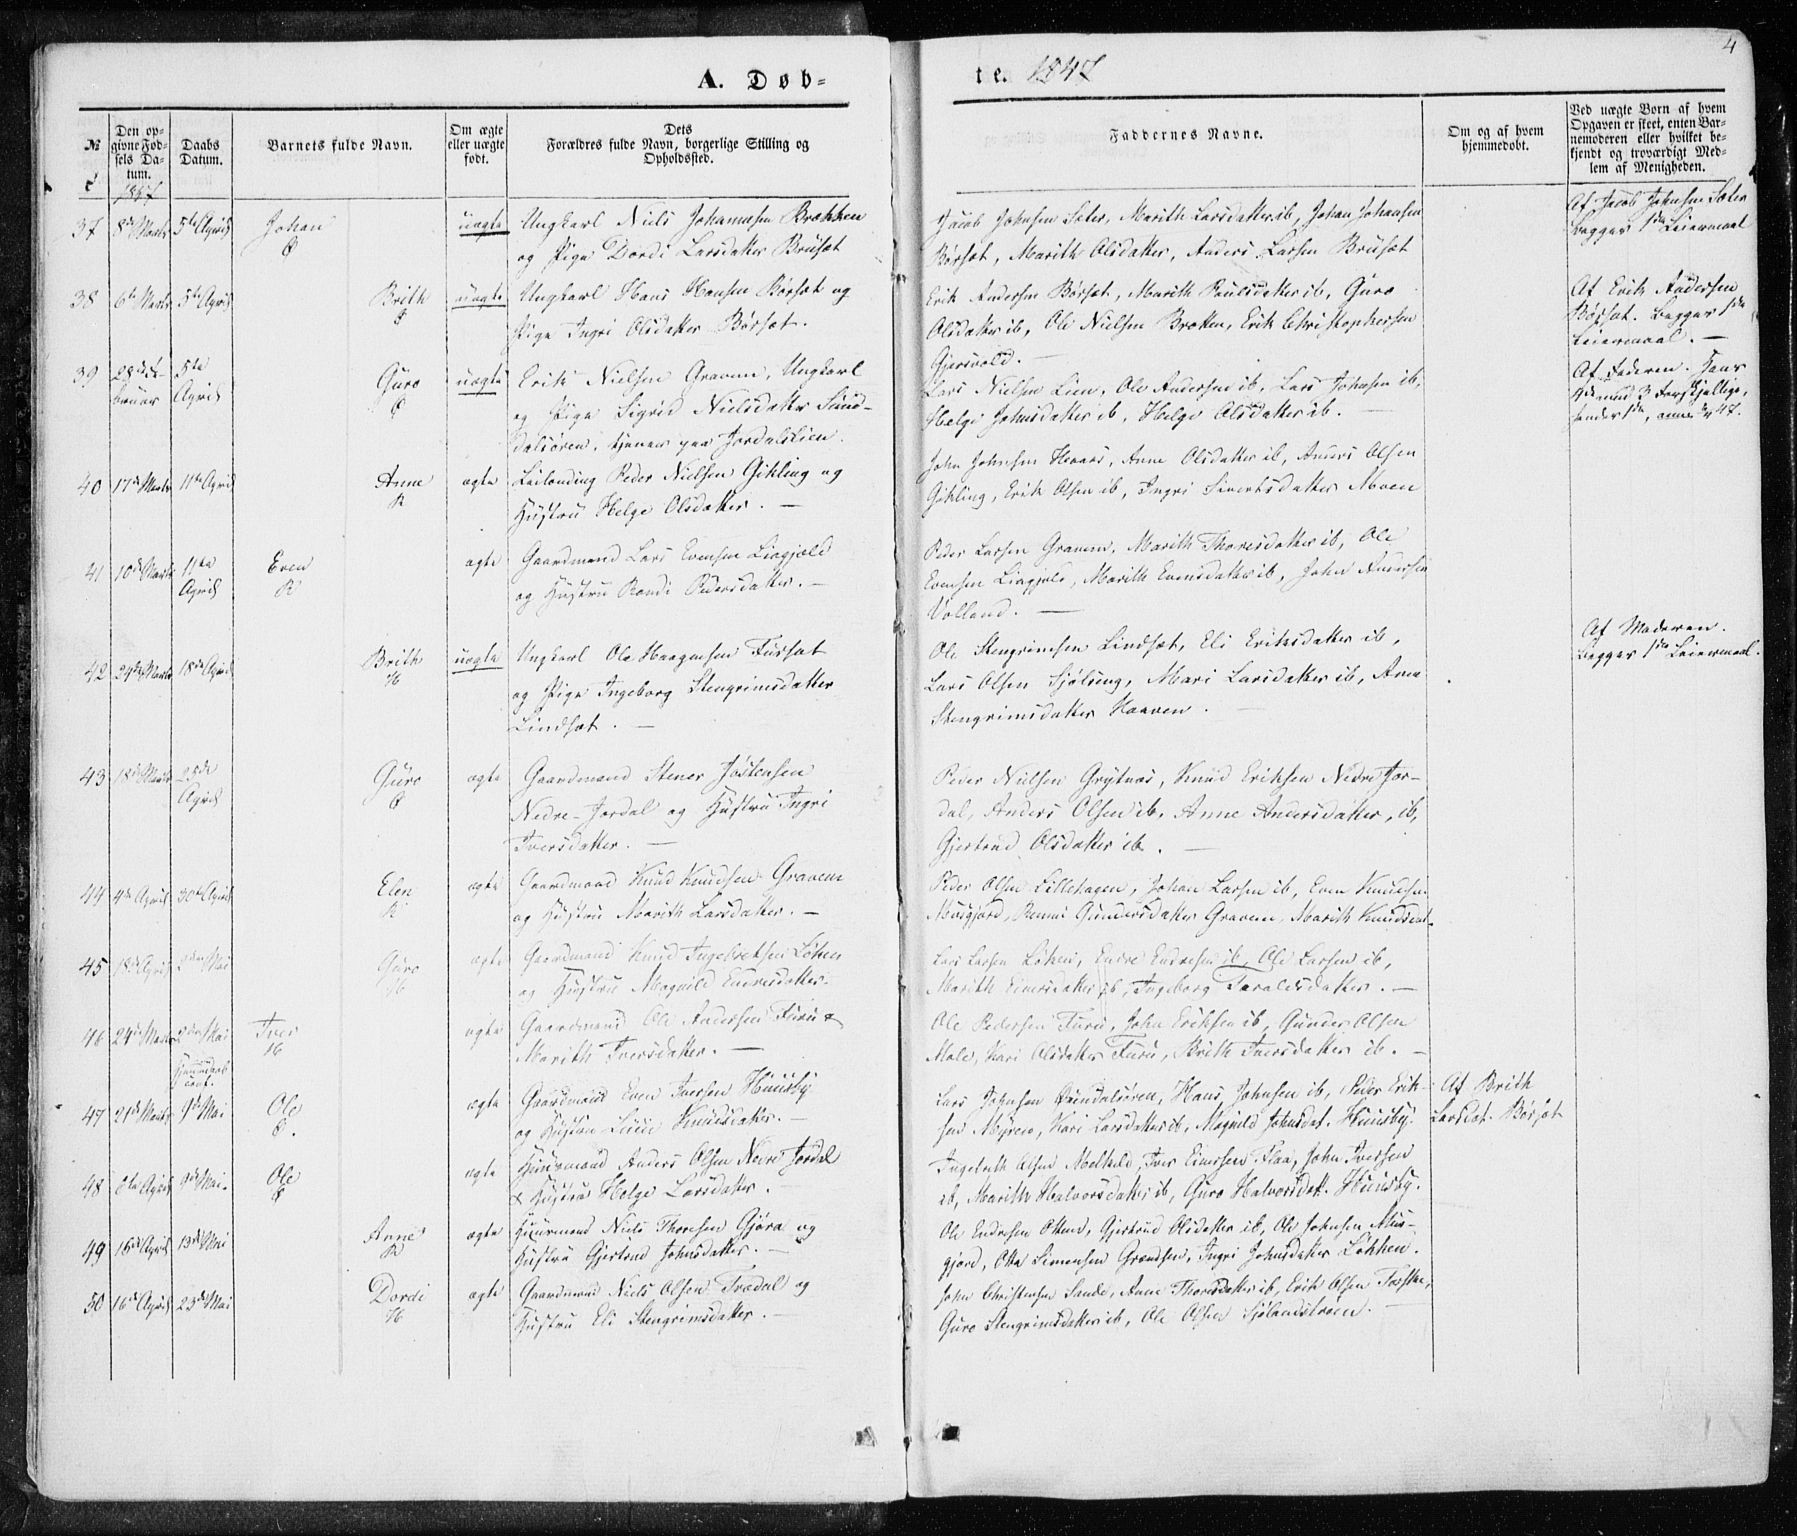 4
A. Døb-
te. 1847
№
Den op-
givne Fød-
sels Da-
tum.
1847
Daabs
Datum.
Barnets fulde Navn.
Om ægte
eller uægte
født.
Dets
Forældres fulde Navn, borgerlige Stilling og
Opholdssted.
Faddernes Navne.
Om og af hvem
hjemmedøbt.
Ved uægte Børn af hvem
Opgaven er skeet, enten Bar-
nemoderen eller hvilket be-
kjendt og troværdigt Med-
lem af Menigheden.
37 8de Marts 5te April Johan uægte Ungkarl Niels Johannesen Brækken
og Pige Dordi Larsdatter Brusæt
Jacob Johnsen Seter, Marith Larsdatter ib, Johan Johansen
Børsæt, Marith Olsdatter, Anders Larsen Brusæt
Af Jacob Johnsen Sæter
Begges 1ste Leiermaal
38 6te Marts 5te April Brith uægte Ungkarl Hans Hansen Børsæt og
Pige Ingri Olsdatter Børsæt.
Erik Andersen Børsæt, Marith Paulsdatter ib, Guro
Olsdatter ib, Ole Nielsen Bretten, Erik Christophersen
Gjersvold. —
Af Erik Andersen
Børsæt. Begges 1ste
Leiermaal. —
39 5te
April Guro uægte Erik Nielsen Gravem, Ungkarl
og Pige Sigrid Nielsdatter Sund-
dalsøren, tjener paa Jordalslien.
Lars Nielsen Lien, Ole Andersen ib, Lars Johnsen ib,
Helge Johnsdatter ib, Helge Olsdatter ib. —
Af Faderen. Hans
40 17de Marts 11te April Anne ægte Leilænding Peder Nielsen Gikling og
Hustru Helge Olsdatter. —
John Johnsen Hevaas, Anne Olsdatter ib, Anders Olsen
Gikling, Erik Olsen ib, Ingri Sivertsdatter Moen
41 10de Marts 11te
April Even ægte Gaardmand Lars Evensen Liagjeld
og Hustru Randi Pedersdatter. —
Peder Larsen Gravem, Marith Thoresdatter ib, Ole
Evensen Liagjeld, Marith Evensdatter ib, John Andersen
Volland. —
42 24de Marts 18de April Brith uægte Ungkarl Ole Haagensen Fursæt
og Pige Ingeborg Stengrimsdatter
Lindsæt. —
Ole Stengrimsen Lindsæt, Eli Eriksdatter ib,
Lars Olsen Sjølseng, Mari Larsdatter ib, Ane
Stengrimsdatter Haaven. —
Af Moderen.
Begges 1ste Leiermaal.
43 18de Marts 25de
April Guro ægte Gaardmand Stener Jostensen
Nedre-Jordal og Hustru Ingri
Iversdatter. —
Peder Nielsen Grytnes, Knud Eriksen Nedre Jor-
dal, Anders Olsen ib, Anne Andersdatter, ib,
Gjertrud Olsdatter ib. —
44 4de April 30te April Elen ægte Gaardmand Knud Knudsen Gravem
og Hustru Marith Larsdatter. —
Peder Olsen Lillehagen, Johan Larsen ib, Even Knudsen
Musgjerd, Gundersdatter Gravem, Marith Knudsdat.
45 18de April 2den Mai Guro ægte Gaardmand Knud Ingebretsen Løken
og Hustru Magnild Endresdatter.
Lars Larsen Løken, Endre Endresen ib, Ole Larsen ib,
Marith Einersdatter ib, Ingeborg Taraldsdatter. —
46 24de Marts 2den Mai Iver ægte Gaardmand Ole Andersen Furu &
Marith Iversdatter. —
Ole Pedersen Furu, John Eriksen ib, Gunder Olsen
Male, Kari Olsdatter Furu, Brith Iversdatter ib. —
47 21de Marts 9de Mai Ole ægte Gaardmand Even Iversen Huusby
og Hustru Knudsdatter. —
Lars Johnsen Sundalsøren, Hans Johnsen ib, Peder Erik-
sen Myren, Kari Larsdatter ib, Magnild Johnsdat. Huusby.
Af Brith
Larsdat. Børsæt
48 8te April 9de Mai Ole ægte Huusmand Anders Olsen Nedre Jordal
& Hustru Helge Larsdatter. —
Ingebrith Olsen Melkild, Iver Einersen Flaa, John Iversen
ib, Marith Halvorsdatter ib, Guro Halvorsdat. Huusby.
49 16de April 13de Mai Anne ægte Huusmand Niels Thoresen Gjøra og
Hustru Gjertrud Johnsdatter. —
Ole Endresen Ottem, Gjertrud Olsdatter ib, Ole Johnsen Mus-
gjerd, Otte Simensen Grændsen, Ingri Johnsdatter Løkken.
50 16de April 23de Mai Dordi ægte Gaardmand Niels Olsen Trædal og
Hustru Eli Stengrimsdatter. —
John Christensen Sande, Anne Thoresdatter ib, Erik Olsen Torske,
Guro Stengrimsdatter ib, Ole Olsen Sjølandstrøen. —